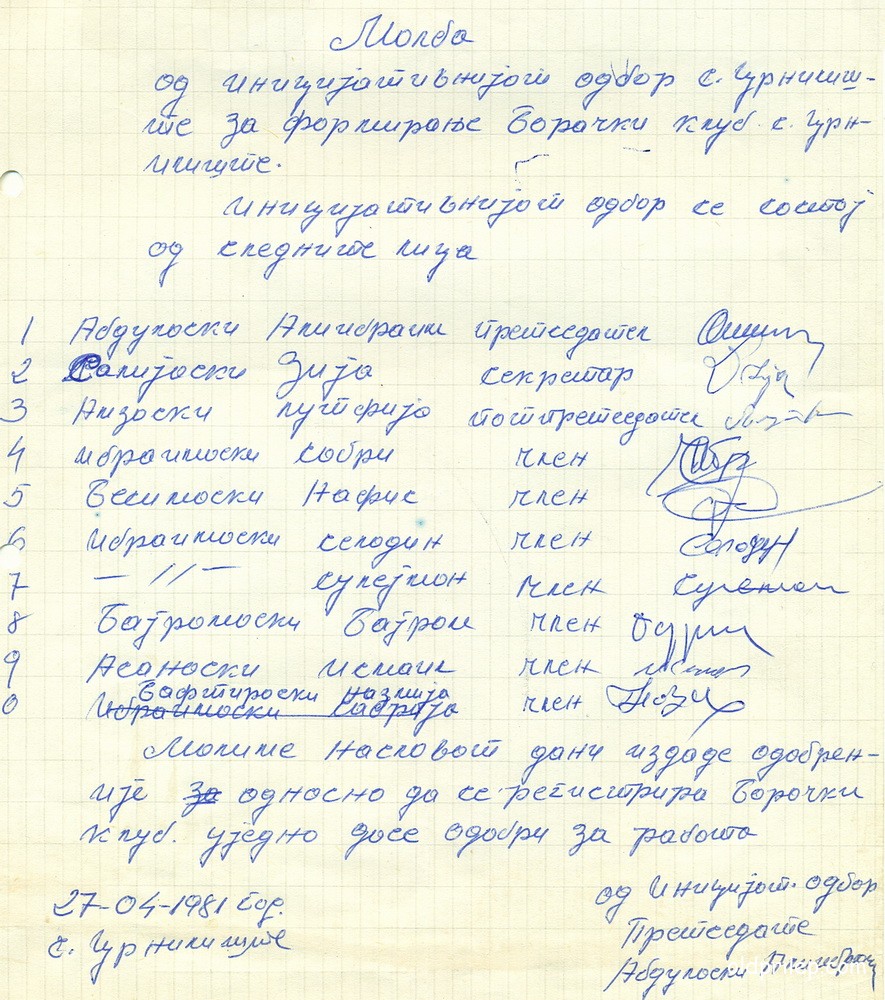 Молба
од иницијативнијот одбор с. Гурнишиш-
те за формирање Борачки клуб с. Гурн-
ипиште.
Иницијативнијот одбор се состој
од следните лица
1 Абдулоски Алиибраим претседател
2 Салијоски Зија секретар Зија
3 Лутфија потпретседател
4 Ибраимоски Сабри член
5 Бесимоски Нафис член
6 Ибраимоски Селадин член
7 — // — Сулејман член Сулејман
8 Бајрамоски Бајрам член
9 Асаноски Исмаил член
Бафтироски Назмија
0 Ибраимоски Сабрија член
Молиме Насловот дани издаде одобрен-
ије за односно да се регистрира Борачки
клуб. уједно дасе одобри за работа
27-04-1981 год.
с. Гурнипиште
од Иницијат. одбор
Претседате
Абдулоски Алиибраим